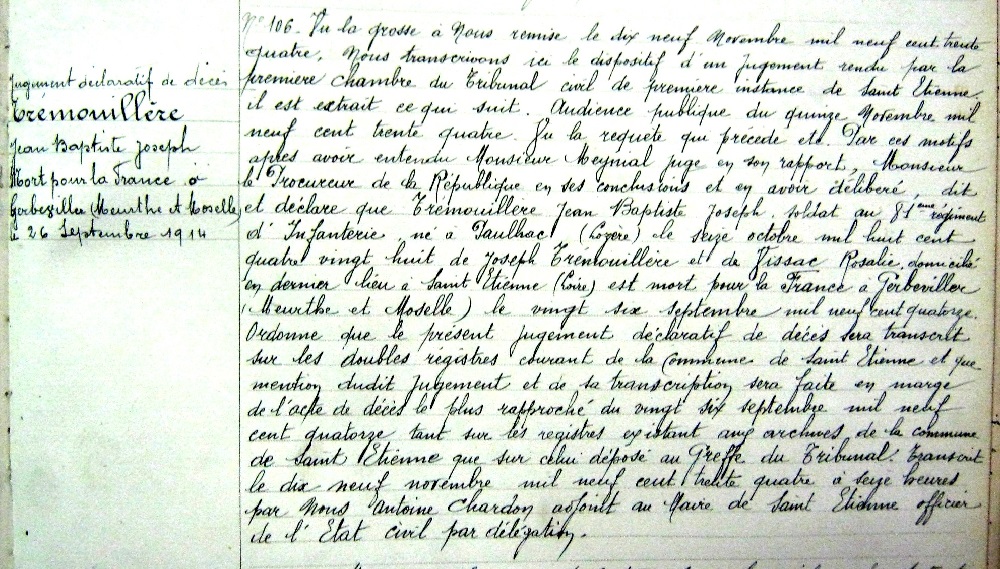 Jugement déclaratif de décès
Trémouillère
Jean Baptiste Joseph
Mort pour la France à
Gerbeviller (Meurthe et Moselle)
le 26 Septembre 1914
N° 106. Vu la grosse à Nous remise le dix neuf Novembre mil neuf cent trente
quatre, Nous transcrivons ici le dispositif d'un jugement rendu par la
première chambre du Tribunal civil de première instance de Saint Etienne.
il est extrait ce qui suit. Audience publique du quinze Novembre mil
neuf cent trente quatre. Vu la requête qui précède etc. Par ces motifs
après avoir entendu Monsieur Meynial juge en son rapport, Monsieur
le Procureur de la République en ses conclusions et en avoir délibéré, dit
et déclare que Trémouillère Jean Baptiste Joseph, soldat au 81ème régiment
d'Infanterie né à Paulhac (Lozère) le seize octobre mil huit cent
quatre vingt huit de Joseph Trémouillère et de Vissac Rosalie, domicilié
en dernier lieu à Saint Etienne (Loire) est mort pour la France à Gerbeviller
(Meurthe et Moselle) le vingt six septembre mil neuf cent quatorze.
Ordonne que le présent jugement déclaratif de décès sera transcrit
sur les doubles registres courant de la commune de Saint Etienne et que
mention dudit jugement et de sa transcription sera faite en marge
de l'acte de décès le plus rapproché du vingt six septembre mil neuf
cent quatorze tant sur les registres existant aux archives de la commune
de Saint Etienne que sur celui déposé au Greffe du Tribunal. Transcrit
le dix neuf novembre mil neuf cent trente quatre à seize heures
par Nous Antoine Chardon adjoint au Maire de Saint Etienne officier
de l'Etat civil par délégation.